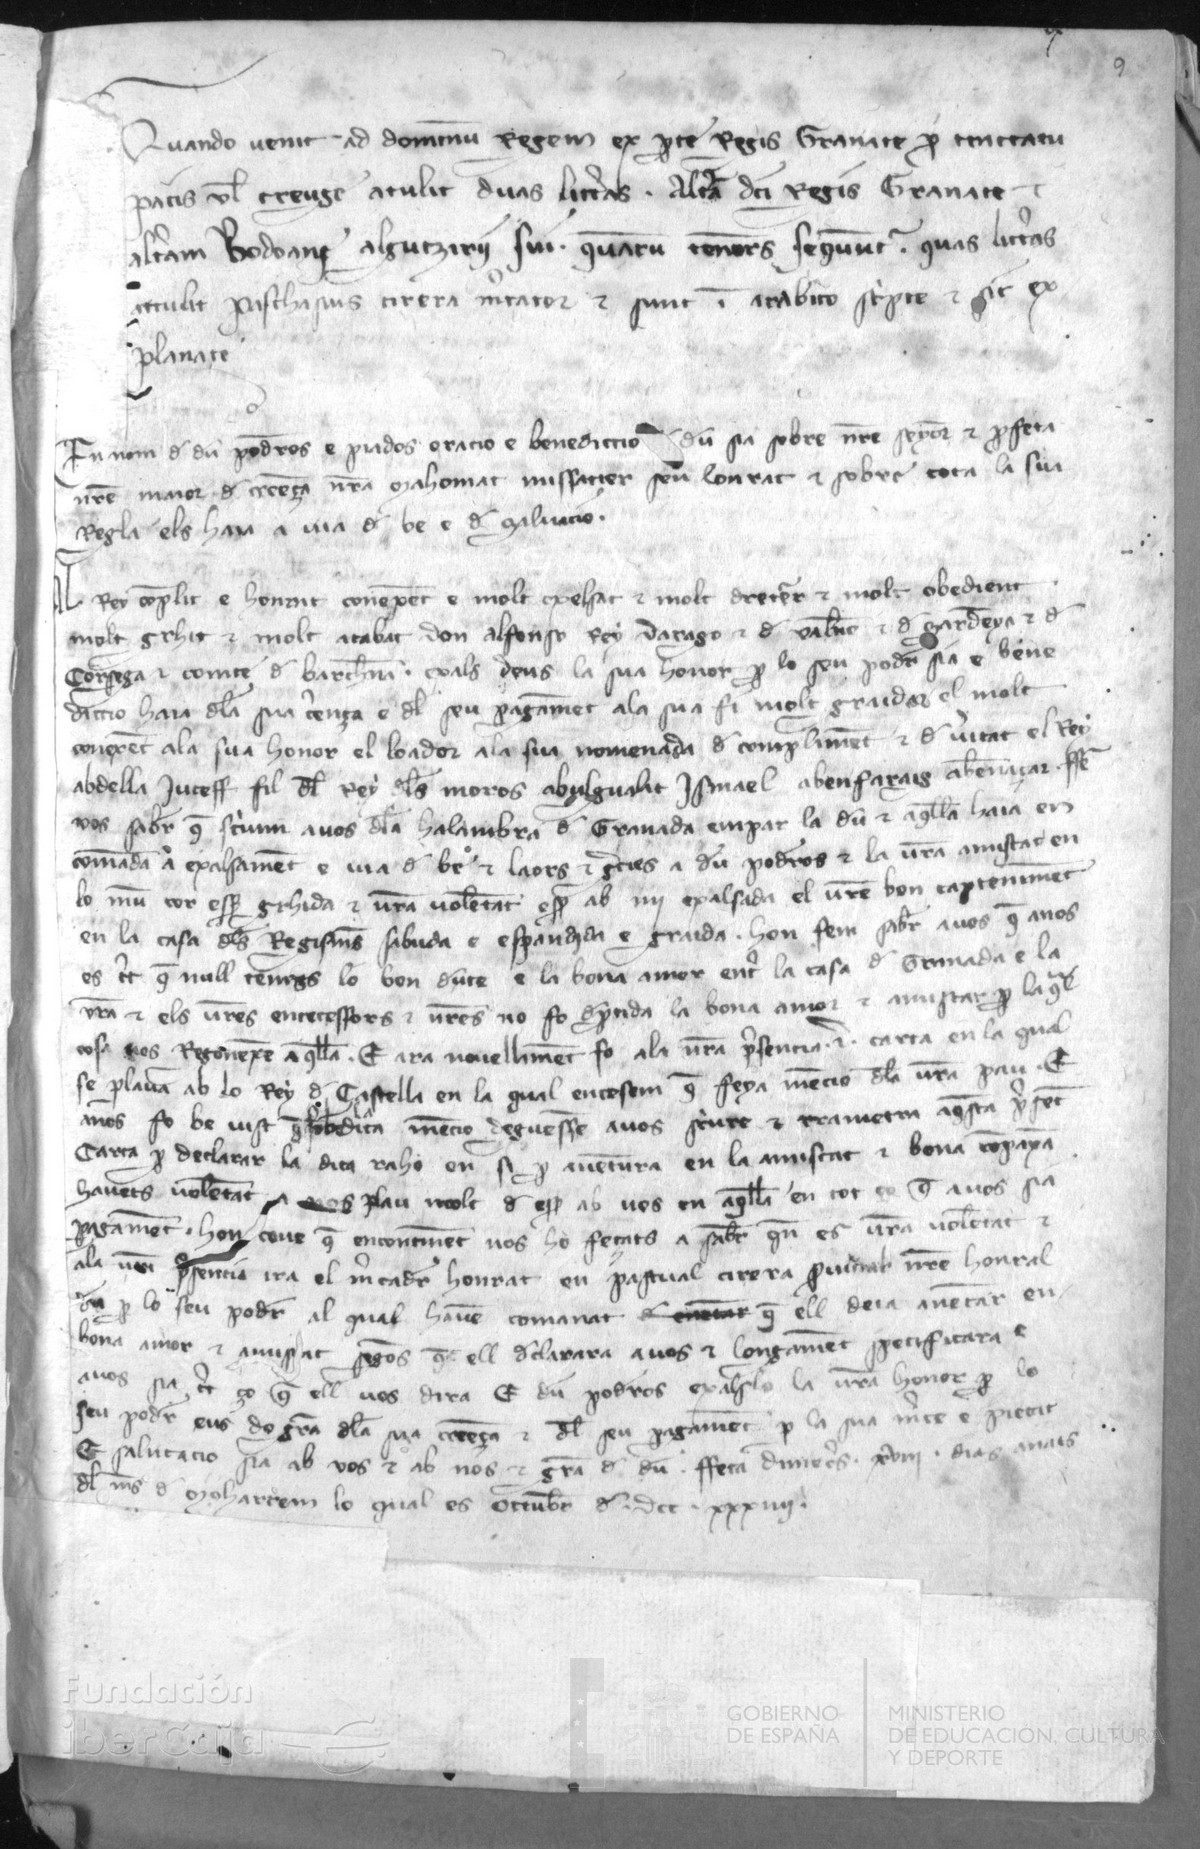 9
Quando venit ad dominū Regem ex pte Regis Granate p tractatu
pacis vl treuge atulit duas lictras . Altā dci Regis Granate ⁊
altam Rodoani algutzirii sui . quarū tenors sequnt . quas lictras
attulit paschasius cirera mcator ⁊ sunt ī arabico scripte ⁊ sic ex
planate
En nom d dū podros e piados oracio e benediccio d dū sia sobre nre seyor ⁊ pfeta
nre maior d creēça nra Mahomat missatger seu honrat ⁊ sobre tota la sua
Regla els haia a via d be e d salvacio .
Al Rey cōplit e honrat conexēt e molt exelsat ⁊ molt dreturer ⁊ molt obedient
molt grhit ⁊ molt acabat don Alfonso Rey Darago ⁊ d valēc ⁊ d Sardeya ⁊ d
Corsega ⁊ comte d barchna . exals deus la sua honor p lo seu podr sia e bene
diccio haia dla sua cēnça e dl seu pagamēt ala sua fi molt graidar el molt
conexēt ala sua honor el loador ala sua nomenada d complimēt ⁊ d vitat el Rey
abdella Juceff fil dl Rey dls moros abulgualit Ismael abenfarag abennaçar . ffē
vos sabr q scrium avos dla halambra d Granada empar la dū ⁊ aqlla haia en
comāda a exalsamēt e via d be ⁊ laors ⁊ gcies a dū podros ⁊ la vra amistat en
lo mū cor es grhida ⁊ vra volētat es ab mi exalsada el vre bon capteniment
en la casa dls Regismes sabuda e espandida e graida . hon fem sabr avos q anos
es ct q null temps lo bon dute e la bona amor ent la casa d Granada e la
vra ⁊ els vres encecessors ⁊ nres no fo dptida la bona amor ⁊ amistat p la ql
cosa nos Regonexē aqlla . E ara novellamēt fo ala nra psencia . i . carta en la qual
se plavā ab lo Rey d Castella en la qual encesem q feya mēcio dla vra pau . E
anos fo be vist q dla dita mēcio deguesse avos scriure ⁊ trametra aqsta psēt
Carta p declarar la dita raho en si p aventura en la amistat ⁊ bona cōpayā
havets volētat a nos plau molt d es ab vos en aqlla en tot ço q avos sia
pagamēt . hon cove q encontinēt nos ho feçats a sabr qn es vra volētat ⁊
ala vra psencia ira el mcadr honrat en pascual cirera privat nre honrat
p lo seu podr al qual havē comanat q ell deia aventar en
bona amor ⁊ amistat segōs q ell dclarara avos ⁊ longamēt specificara e
avos sia ct ço q ell vos dira E dū podros exalsse la vra honor p lo
seu podr eus do gra dla sua creēça ⁊ dl seu pagamēt p la sua mce e pietat
E salutacio sia ab vos ⁊ ab nos ⁊ gra d dū . ffeta dimecrs . xviii . dias anats
dl mes d Moharrem lo qual es Octubr d . dcc . xxxviii .
Fundación
iberCaja
GOBIERNO
DE ESPAÑA
MINISTERIO
DE EDUCACIÓN, CULTURA
Y DEPORTE